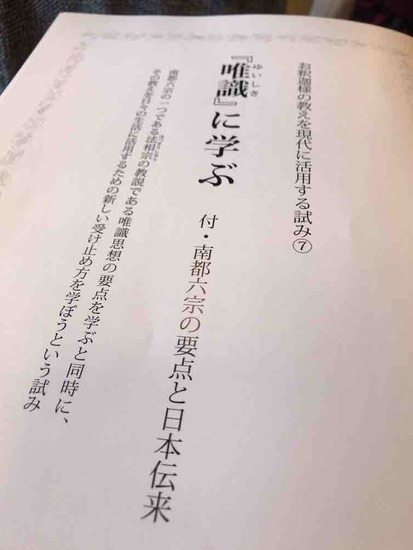 お釈迦様の教えを現代に活用する試み⑦
『唯識』に学ぶ
ゆいしき
付・南都六宗の要点と日本伝来
南都六宗の一つである法相宗の教説である唯識思想の要点を学ぶと同時に、
ほっそうしゅう
その教えを日々の生活に活用するための新しい受け止め方を学ぼうという試み